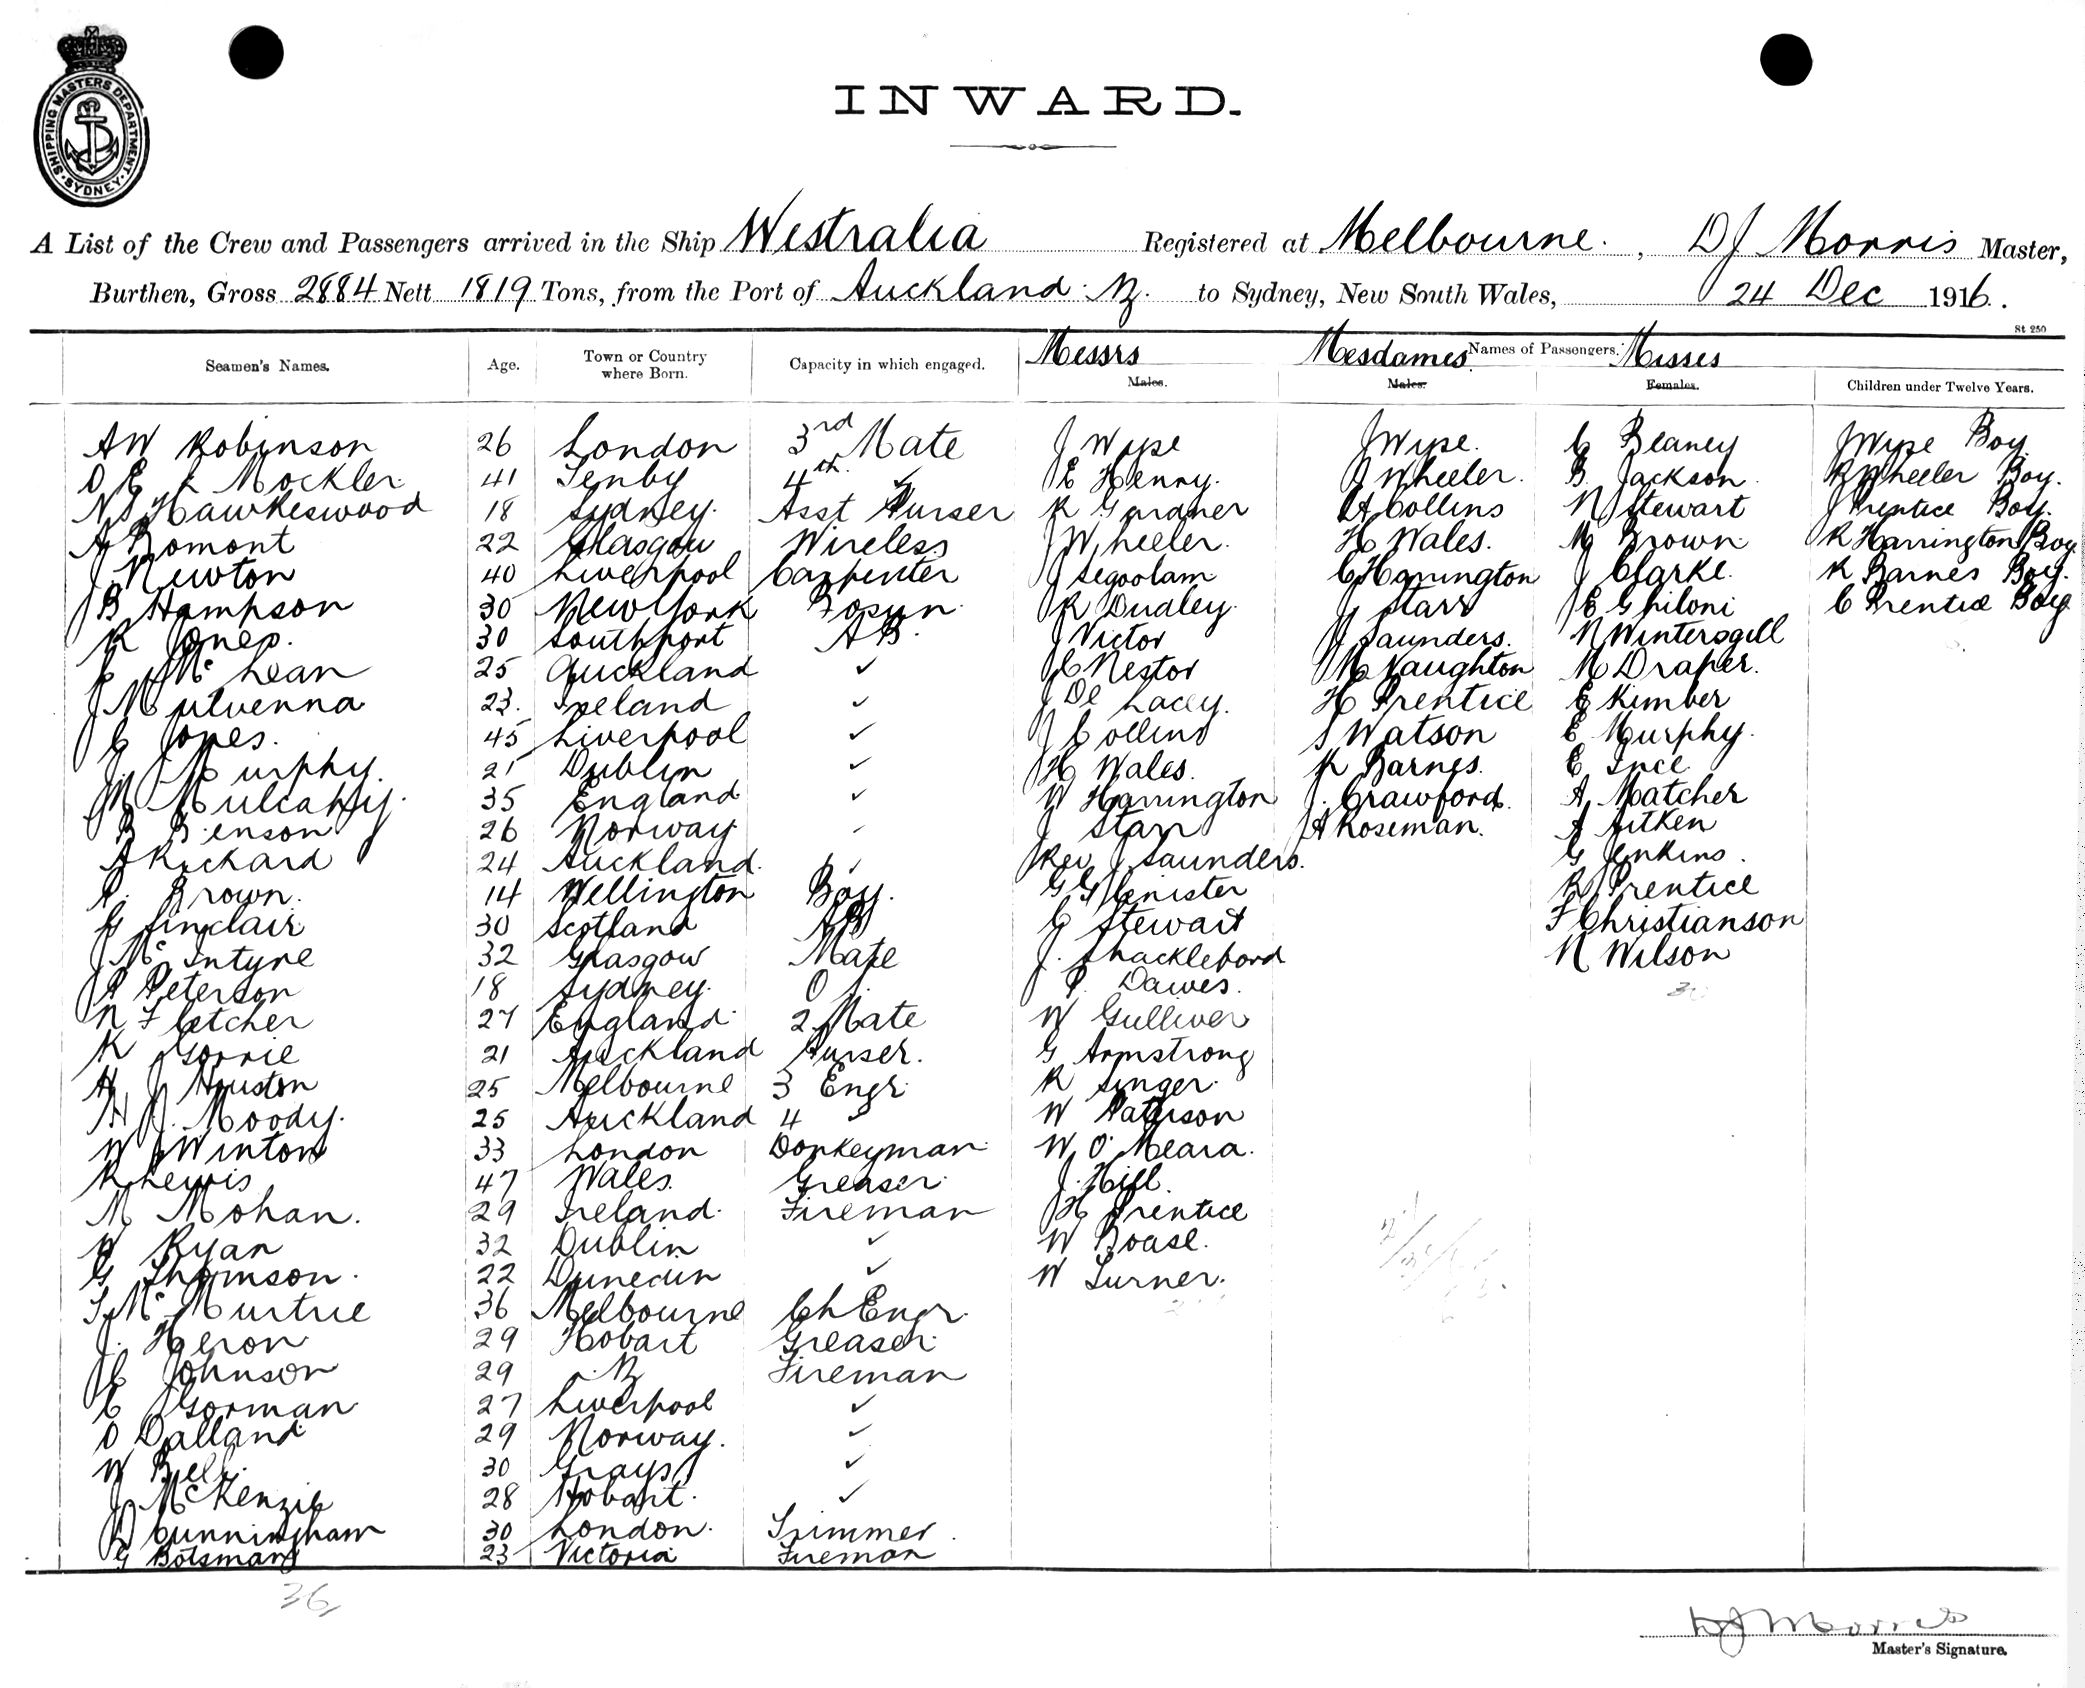 SHIPPING MASTERS DEPARTMENT
SYDNEY
INWARD.
A List of the Crew and Passengers arrived in the Ship Westralia Registered at Melbourne. , D J Morris Master,
Burthen, Gross 2884 Nett 1819 Tons, from the Port of Auckland N.Z. to Sydney, New South Wales, 24 Dec 1916.
St 250
Seamen's Names. Age. Town or Country where Born. Capacity in which engaged. Messrs Mesdames Names of Passengers. Misses
Males. Males. Females. Children under Twelve Years.
A W Robinson 26 London 3rd Mate J Wyse J Wyse. C Beaney J Wyse Boy
O E L Mockler 41 Tenby 4th ✓ E Henry. J Wheeler. B. Jackson R Wheeler Boy.
N S Hawkeswood 18 Sydney. Asst Purser R Gardner A Collins N Stewart J Prentice Boy.
A Bomont 22 Glasgow Wireless J Wheeler. H Wales. M Brown R Harrington Boy
J Newton 40 Liverpool Carpenter J Segoolam C Harrington J Clarke. K Barnes Boy.
B Hampson 30 New York Bosun R Dudley. J Starr E Ghiloni C Prentice Boy
R Jones. 30 Southport A B. J Victor J Saunders. N Wintersgill
Mc Lean 25 Auckland ✓ J C Nestor McNaughton M Draper.
J Mulvenna 23. Ireland ✓ J De Lacey. H Prentice E Kimber
G Jones. 45 Liverpool ✓ J Collins S Watson E Murphy.
J. Murphy. 21 Dublin ✓ H Wales. K Barnes. E Ince
M Mulcahy. 35 England ✓ W Harrington J. Crawford. A Matcher
B Benson 26 Norway ✓ J Starr A Roseman. A Aitken
A Rickard 24 Auckland. ✓ Rev J Saunders. G Jenkins.
A. Brown. 14 Wellington Boy. G Glenister R Prentice
G Sinclair 30 Scotland AB G Stewart F Christianson
J Mc Intyre 32 Glasgow Mate J. Shacklebord N Wilson
A Peterson 18 Sydney. O P. Dawes.
N Fletcher 27 England 2 Mate W Gulliver
K Gorrie 21 Auckland Purser. G Armstrong
H J Houston 25 Melbourne 3 Engr. R Singer.
H J. Moody. 25 Auckland 4 ✓ W Paterson
W Winton 33 London Donkeyman W O'Meara.
R Lewis 47 Wales. Greaser. J. Hill.
M Mohan. 29 Ireland. Fireman H Prentice
W Ryan 32 Dublin ✓ W Boase.
G Thomson. 22 Dunedin ✓ W Turner.
S Mc Murtrie 36 Melbourne Ch Engr.
J. Heron 29 Hobart Greaser.
C Johnson 29 NZ Fireman
C Gorman 27 Liverpool ✓
O Dalland 29 Norway. ✓
W Bell. 30 Grays ✓
J McKenzie 28 Hobart. ✓
D Cunningham 30 London. Trimmer.
G Botsman 23 Victoria Fireman
36
D J Morris
Master's Signature.